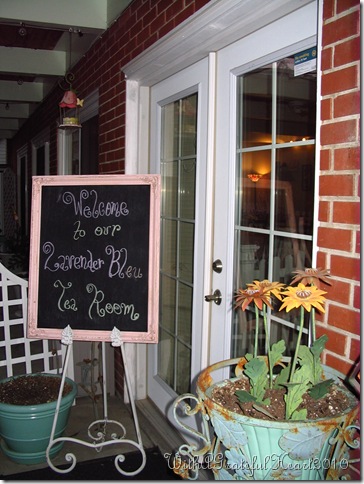 Welcome
to our
Lavender Bleu
Tea Room
WithAGratefulHeart2010